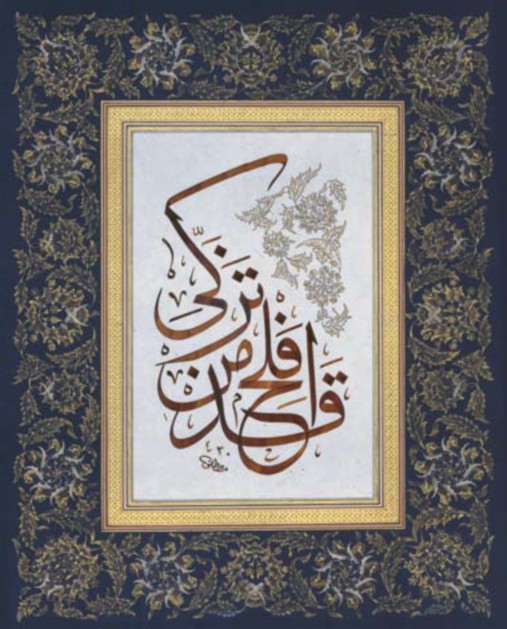 قَدْ أَفْلَحَ مَنْ تَزَكَّىٰ